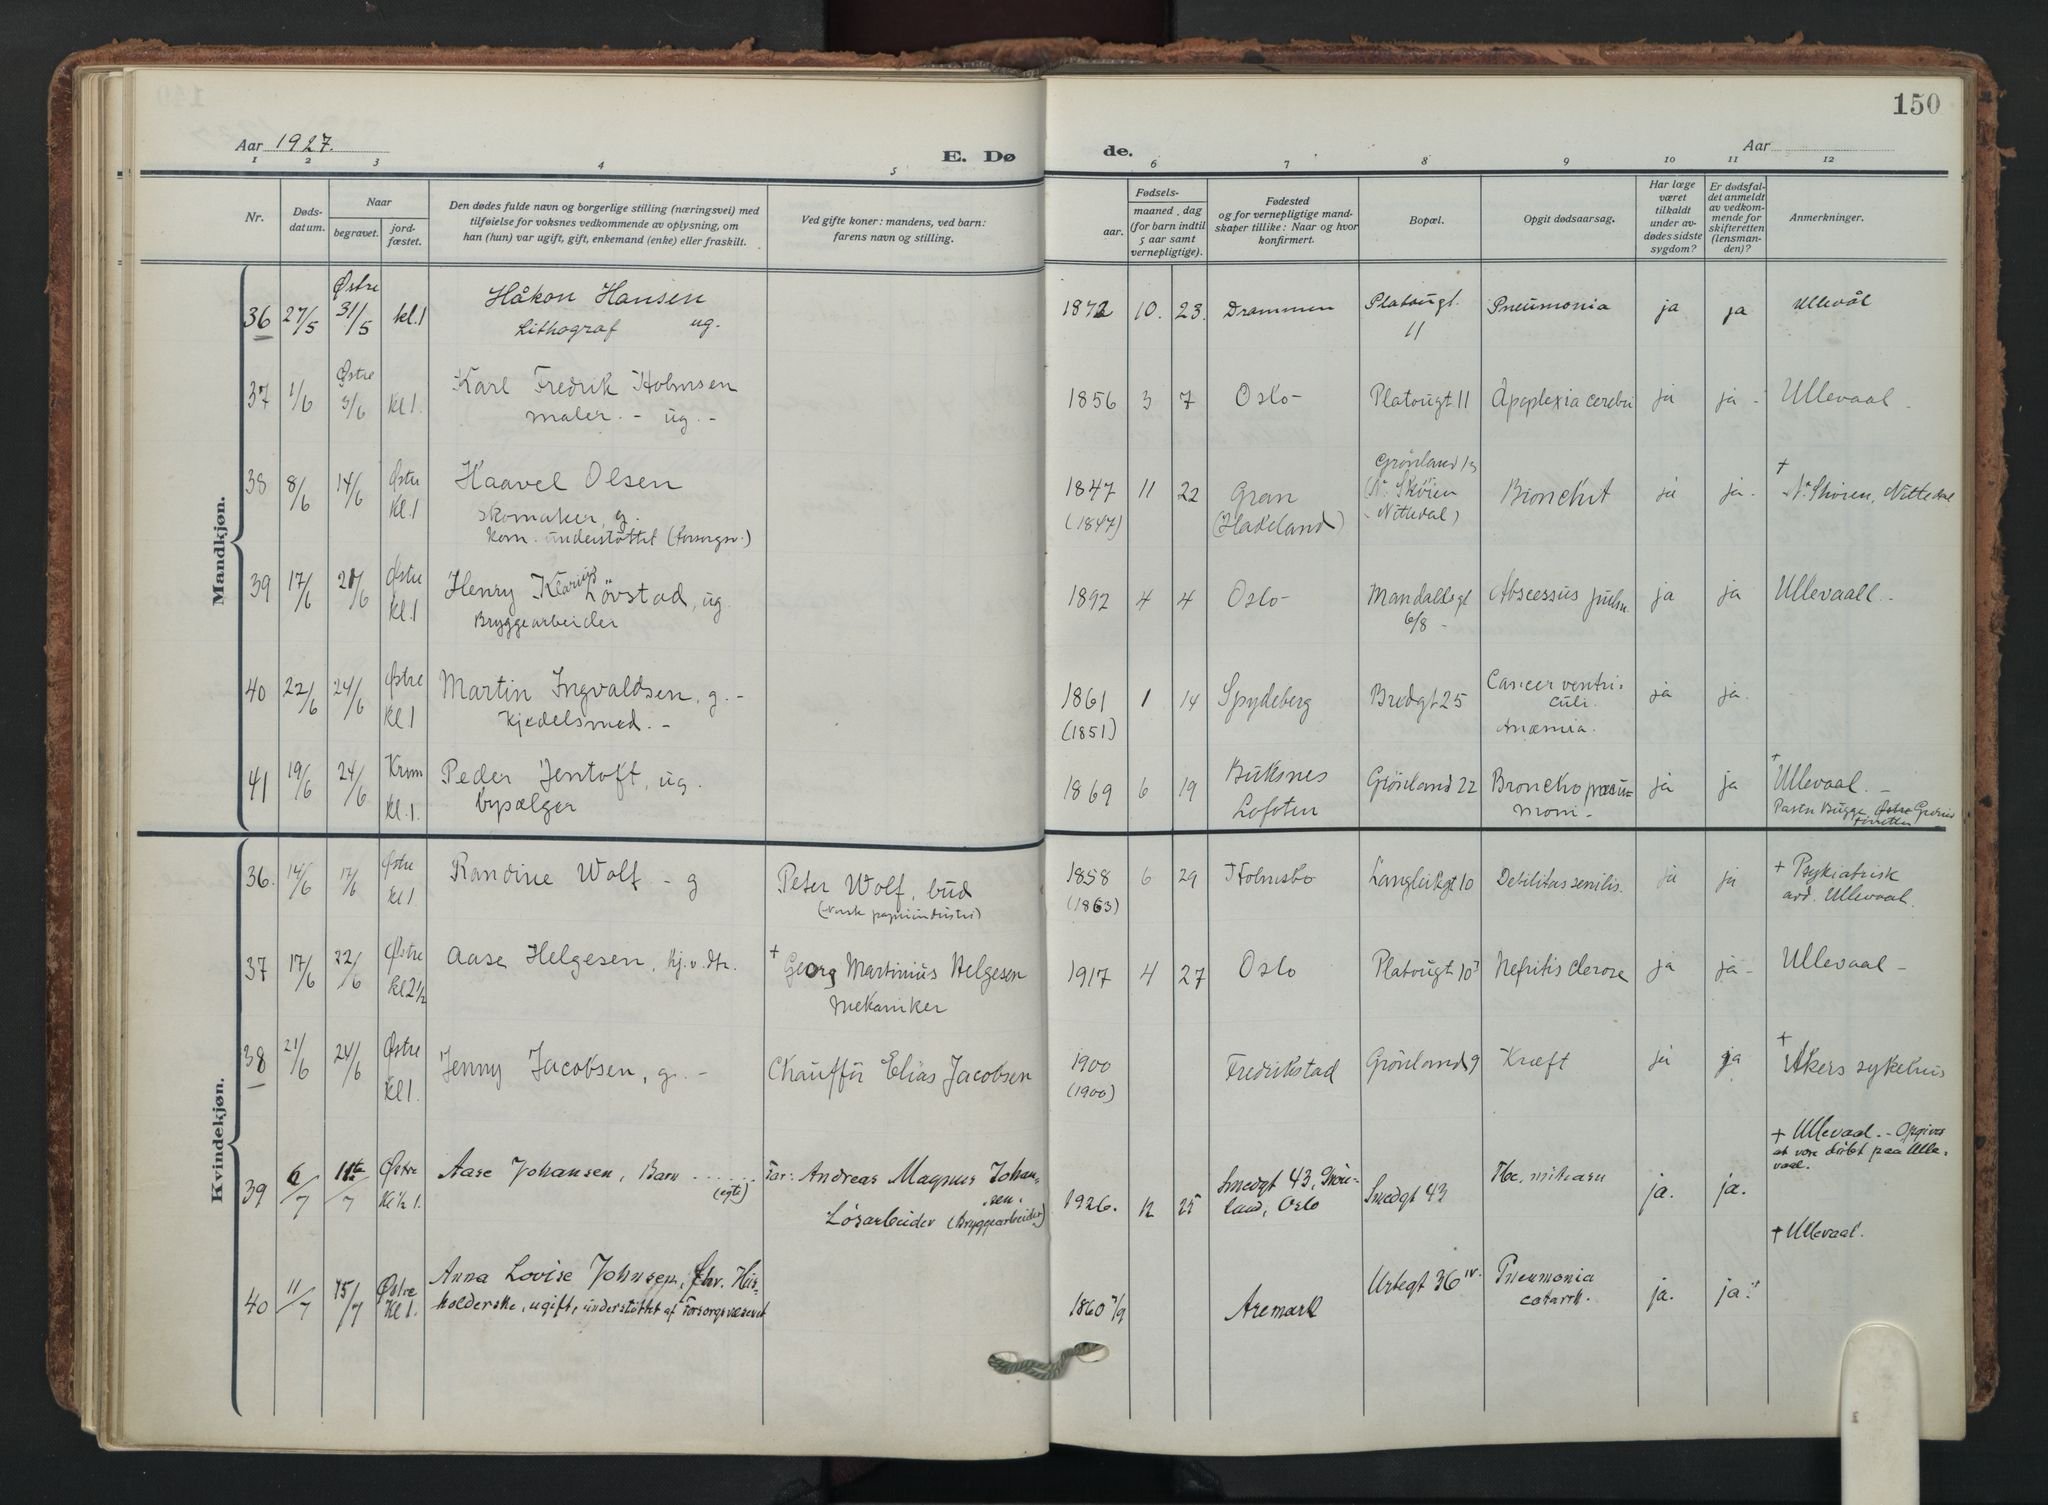 150
Aar 1927.
E. Dø
de.
Aar
1 2 3 4 5 6 7 8 9 10 11 12
Nr.
Døds-
datum.
Naar
begravet.
jord-
fæstet.
Den dødes fulde navn og borgerlige stilling (næringsvei) med
tilføielse for voksnes vedkommende av oplysning, om
han (hun) var ugift, gift, enkemand (enke) eller fraskilt.
Ved gifte koner: mandens, ved barn:
farens navn og stilling.
Fødsels-
aar.
maaned, dag
(for barn indtil
5 aar samt
vernepligtige).
Fødested
og for vernepligtige mand-
skaper tillike: Naar og hvor
konfirmert.
Bopæl.
Opgit dødsaarsag.
Har læge
været
tilkaldt
under av-
dødes sidste
sygdom?
Er dødsfal-
det anmeldt
av vedkom-
mende for
skifteretten
(lensman-
den)?
Anmerkninger.
Mandkjøn.
36 27/5 Østre 31/5 kl.1 Håkon Hansen
Lithograf ug.
1872 10. 23. Drammen Platougt. 11 Pneumonia ja ja Ullevål
37 1/6 Østre 3/6 kl 1. Karl Fredrik Holmsen
maler. - ug. -
1856 3 7 Oslo - Platougt 11 Apoplexia cerebri ja ja - Ullevaal -
38 8/6 14/6 Østre kl.1 Haavel Olsen
skomaker, g.
Kom. understøttet (Forsorgsv.)
1847 (1847) 11 22 Gran (Hadeland) Grønland 13 (N. Skøien Nittedal) Bronchit ja ja. + N. Skøien, Nittedal
39 17/6 21/6 Østre kl.1 Henry Løvstad, ug.
Bryggearbeider
1892 4 4 Oslo - Mandalsgt 6/8 - Abscessus pulm. ja ja Ullevaal. -
40 22/6 24/6 Østre kl 1 Martin Ingvaldsen, g. -
Kjedelsmed. -
1861 (1851) 1 14 Spydeberg Bredgt 25 Cancer ventri-
culi.
Anæmia. ja ja.
41 19/6 24/6 Krem kl.1. Peder Jentoft, ug.
bypælger
1869 6 19 Buksnes Lofoten Grønland 22 Broncho pneu-
moni - ja ja + Ullevaal. -
Pastor Bugge
Kvindekjøn.
36. 14/6 17/6 Østre kl 1 Randine Wolf - g Peter Wolf, bud
(Norsk papirindustri)
1858 (1863) 6 29 Holmsbo Langleikgt 10 Debilitas senilis. ja ja + Psykiatrisk
avd. Ullevaal.
37 17/6 22/6 Østre kl 2½ Aase Helgesen, Kj. v. dtr. + Georg Martinius Helgesen
Mekaniker
1917 4 27 Oslo Platougt 10 Nefritis clerose ja ja - Ullevaal -
38 21/6 24/6 Østre kl 1. Jenny Jacobsen, g. - Chauffør Elias Jacobsen
1900 (1900) Fredrikstad Grønland 9 Kræft ja ja + Akers sykehus
39 6/7 11te/7 Østre Kl ½ 1. Aase Johansen, Barn ......
(egte)
Far: Andreas Magnus Johan-
sen.
Løsarbeider (Bryggearbeider)
1926. 12 25 Smedgt 43, Grøn-
land, Oslo Smedgt 43 Tbc. miliaris ja. ja. + Ullevaal. - Opgives
at være døbt paa Ulle-
vaal.
40 11/7 15/7 Østre Kl 1. Anna Lovise Johnsen, fhv. Hus-
holderske, ugift, understøttet af Forsorgsvæsenet
1860 7/9 Aremark Urtegt 36 IV. Pneumonia
catarrh. ja. ja. + Ullevaal.